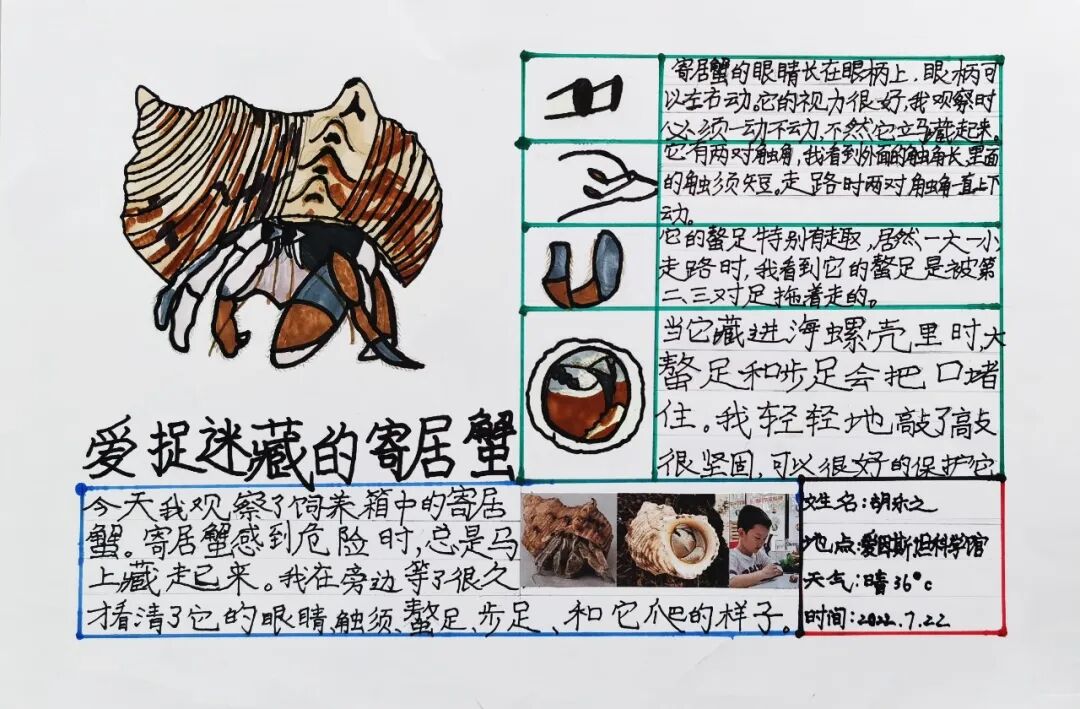 爱捉迷藏的寄居蟹
寄居蟹的眼睛长在眼柄上，眼柄可
以左右动。它的视力很好，我观察时
必须一动不动，不然它立马藏起来。
它有两对触角，我看到外面的触角长，里面
的触须短。走路时两对触角一直上下
动。
它的螯足特别有趣，居然一大一小
走路时，我看到它的螯足是被第
二、三对足拖着走的。
当它藏进海螺壳里时，大
螯足和步足会把口堵
住。我轻轻地敲了敲
很坚固，可以很好的保护它
今天我观察了饲养箱中的寄居
蟹。寄居蟹感到危险时，总是马
上藏起来。我在旁边等了很久
才看清了它的眼睛、触须、螯足、步足、和它爬的样子。
姓名：胡乐之
地点：爱因斯坦科学馆
天气：晴36°c
时间：2022.7.22